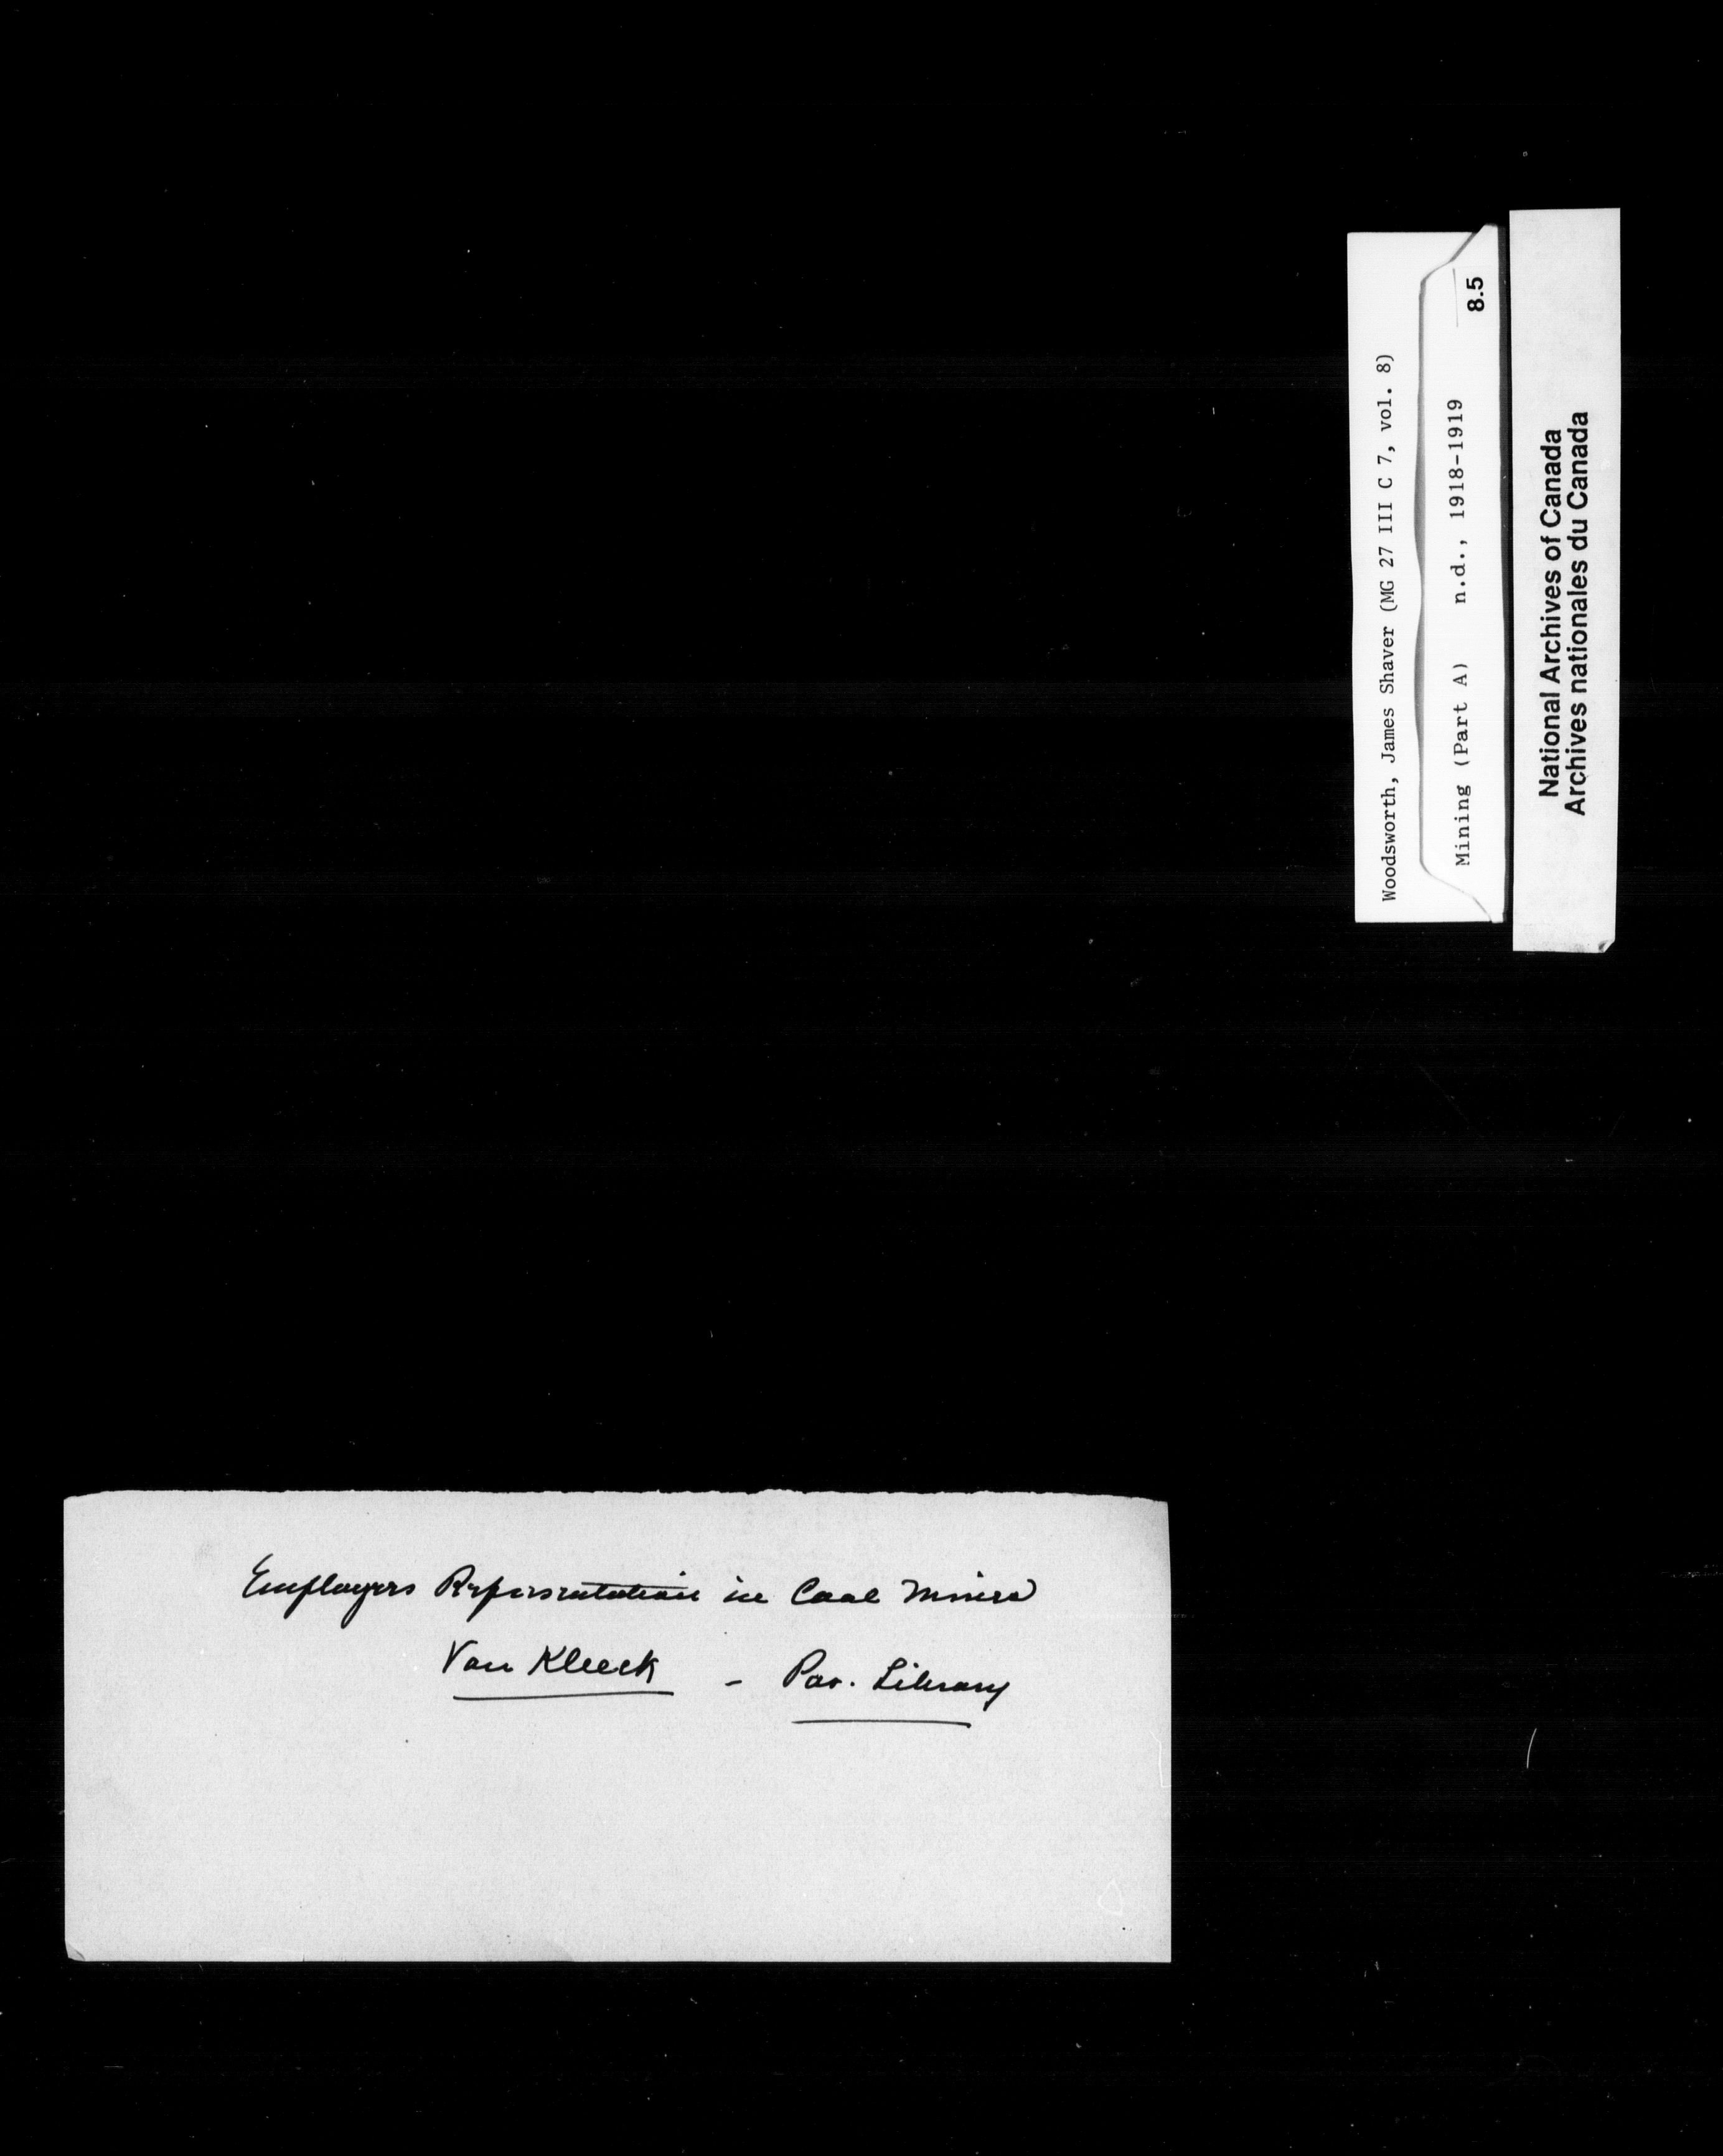 Woodsworth, James Shaver (MG 27 III C 7, vol. 8)
Mining (Part A) n.d., 1918-1919
8.5
National Archives of Canada
Archives nationales du Canada
Employers Representation in Coal Mines
Van Kleeck - Par. Library